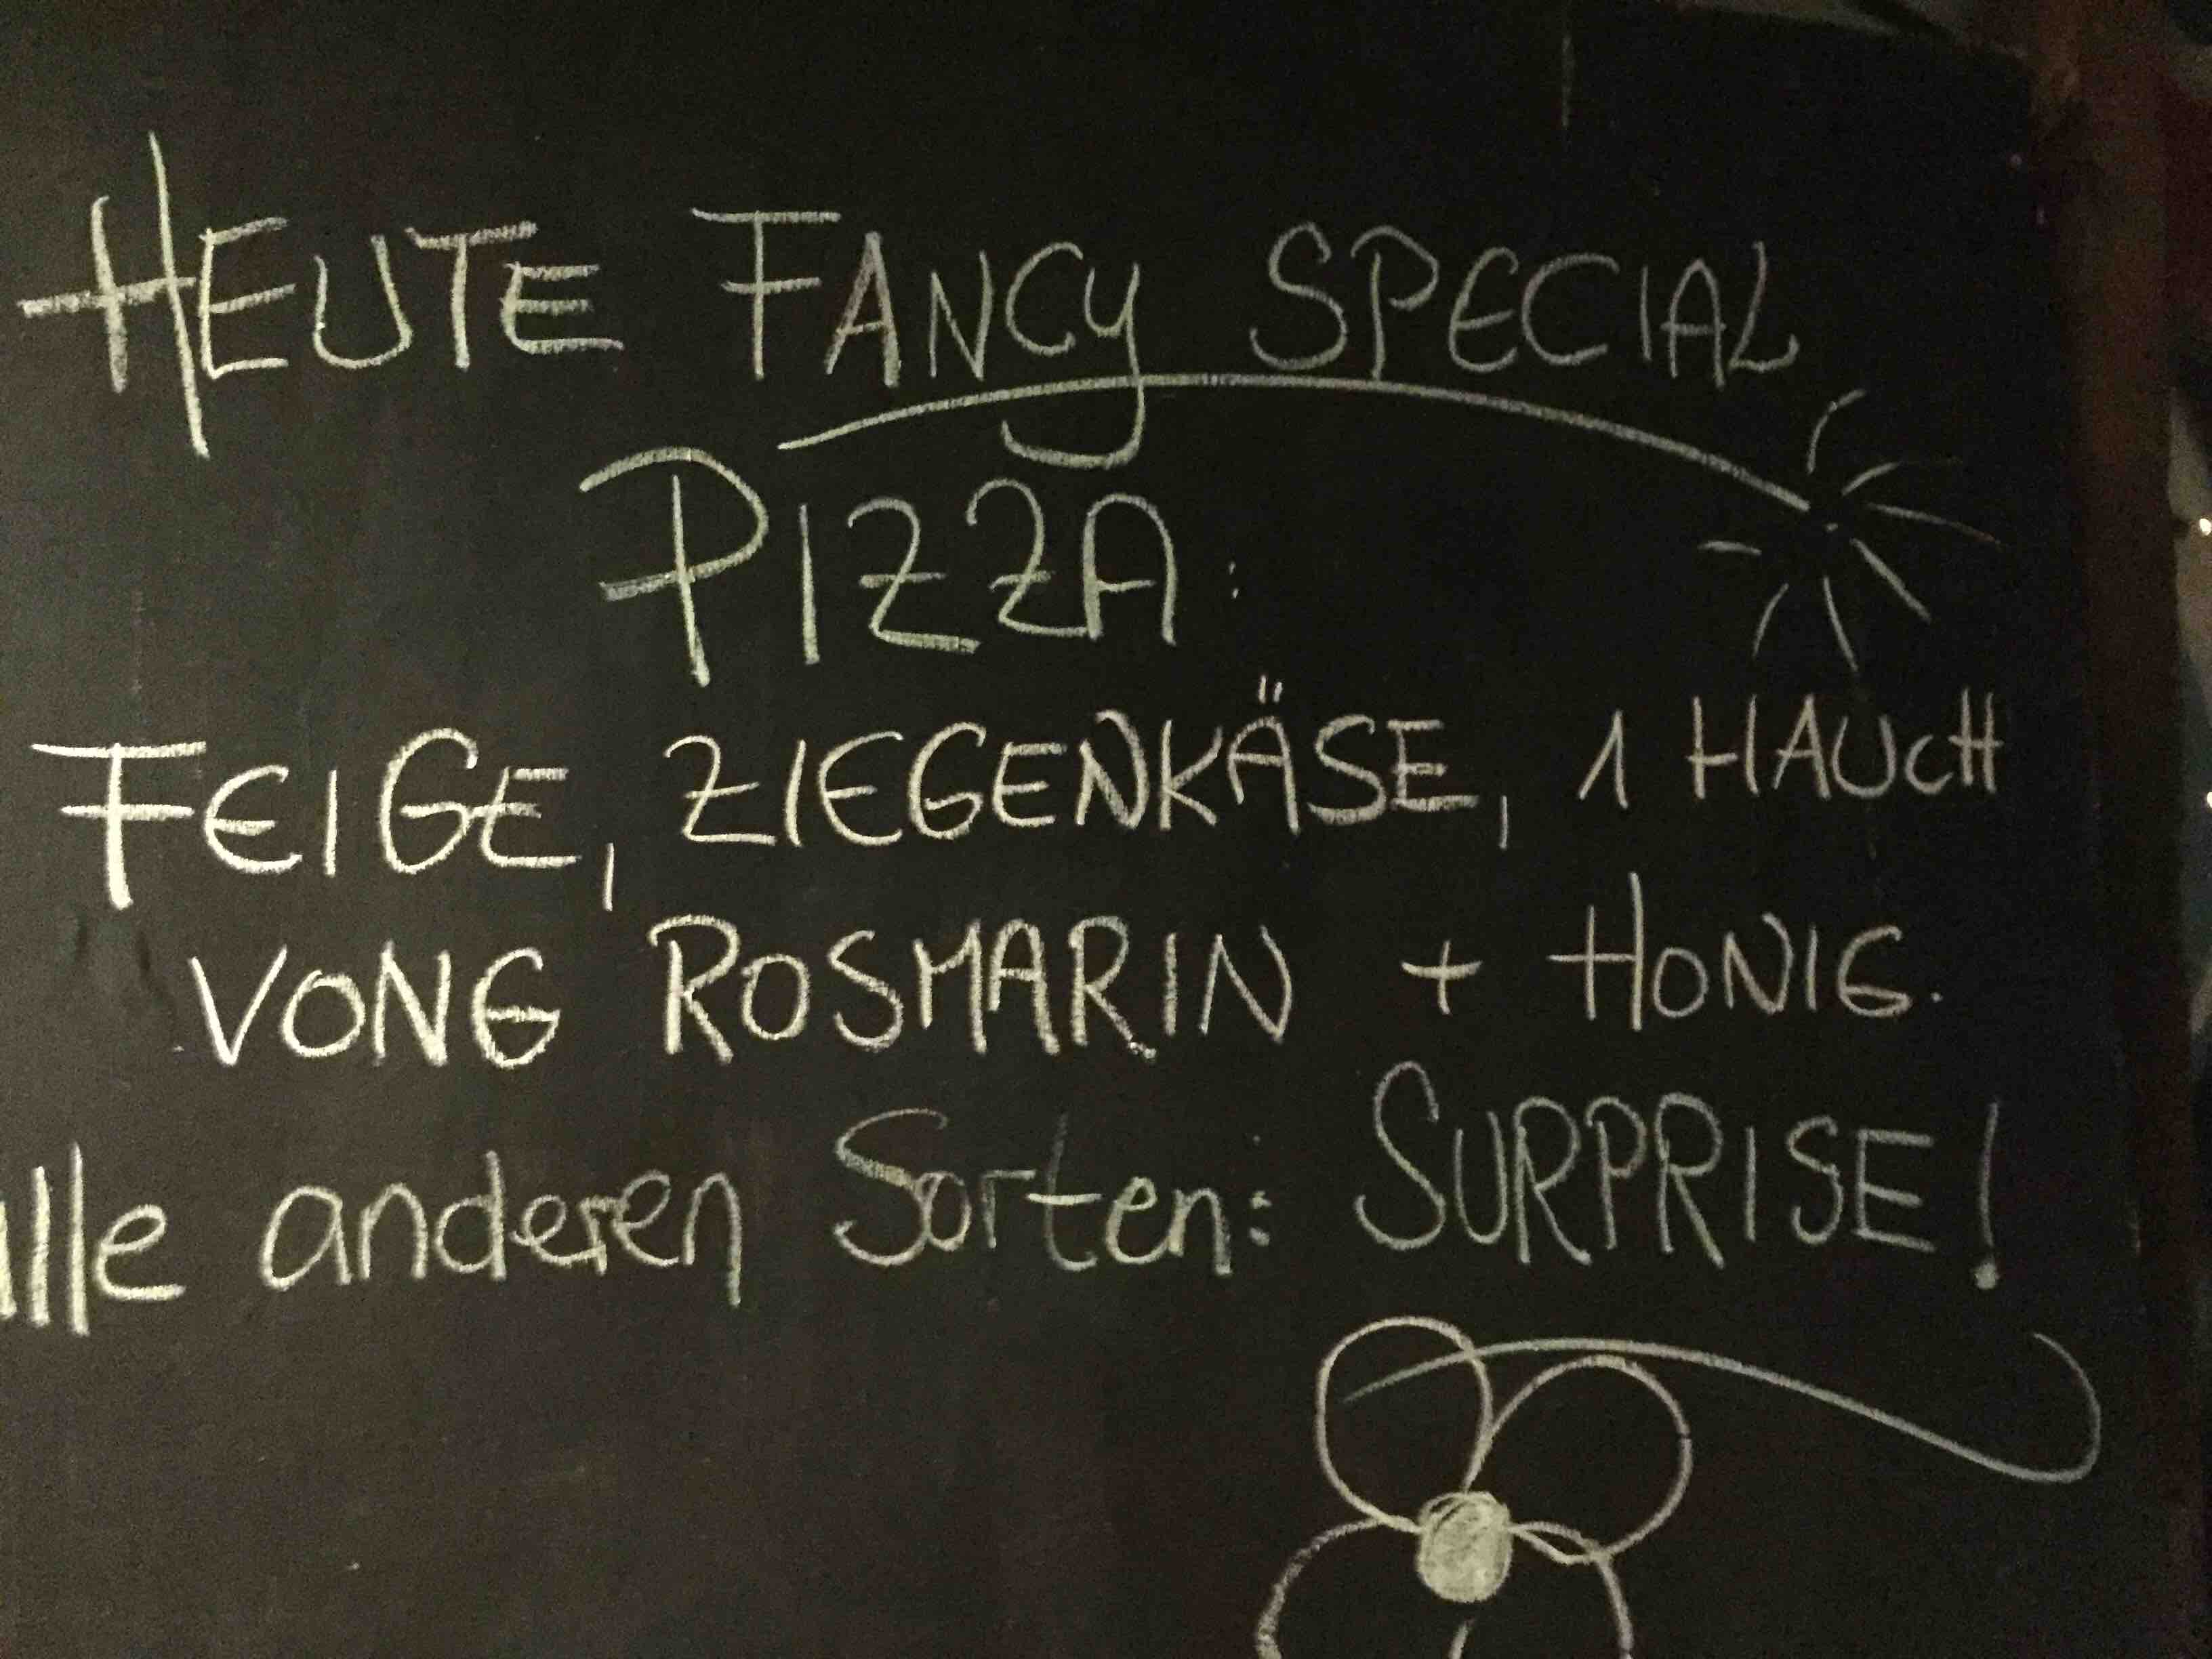 HEUTE FANCY SPECIAL
PIZZA:
FEIGE, ZIEGENKÄSE, 1 HAUCH
VONG ROSMARIN + HONIG.
alle anderen Sorten: SURPRISE!